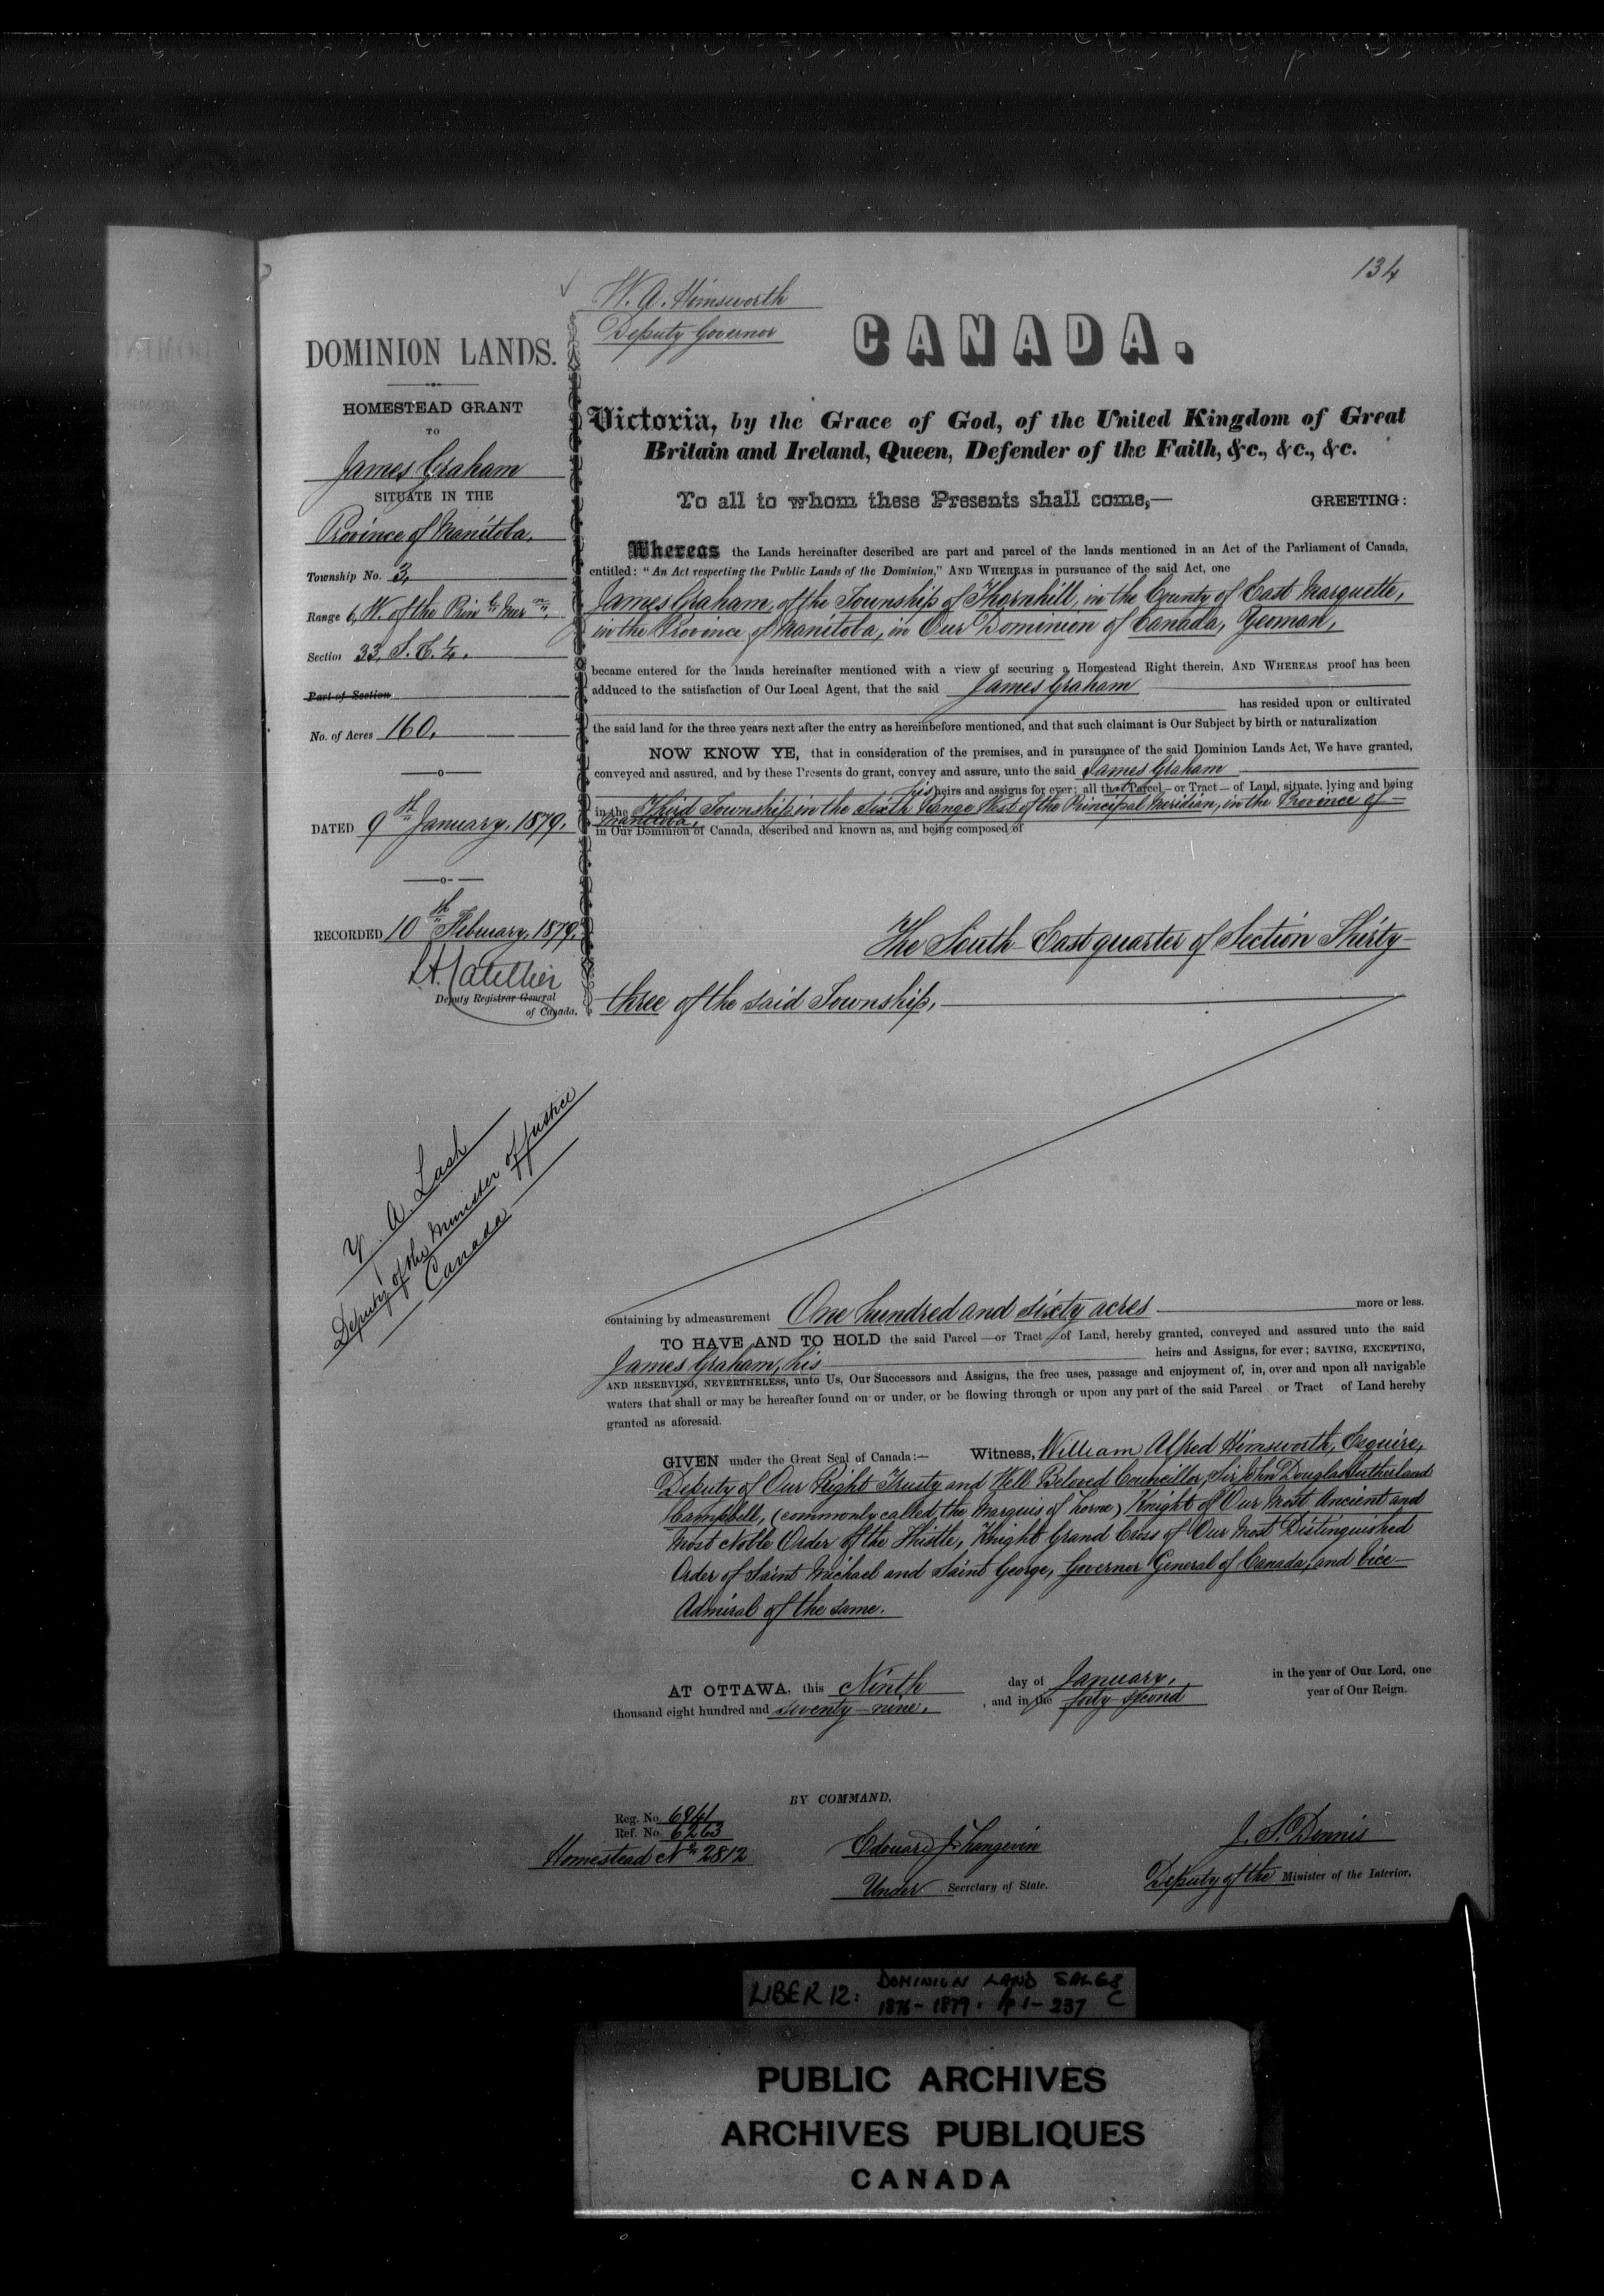 134
W. A. Himsworth
Deputy Governor
CANADA.
DOMINION LANDS.
HOMESTEAD GRANT
TO
James Graham
SITUATE IN THE
Province of Manitoba.
Township No. 3,
Range 6, W. of the Prin l. Mer n.,
Section 33, S.E. ¼.
Part of Section
No. of Acres 160.
DATED 9th January, 1879.
RECORDED 10th February, 1879.
Deputy Registrar General
of Canada.
A. Lash
Deputy of the Minister of Justice
Canada
Victoria, by the Grace of God, of the United Kingdom of Great
Britain and Ireland, Queen, Defender of the Faith, &c., &c., &c.
To all to whom these Presents shall come,— GREETING:
Whereas the Lands hereinafter described are part and parcel of the lands mentioned in an Act of the Parliament of Canada,
entitled: "An Act respecting the Public Lands of the Dominion," AND WHEREAS in pursuance of the said Act, one
James Graham, of the Township of Thornhill, in the County of East Marquette,
in the Province of Manitoba, in Our Dominion of Canada, Yeoman,
became entered for the lands hereinafter mentioned with a view of securing a Homestead Right therein, AND WHEREAS proof has been
adduced to the satisfaction of Our Local Agent, that the said James Graham
has resided upon or cultivated
the said land for the three years next after the entry as hereinbefore mentioned, and that such claimant is Our Subject by birth or naturalization
NOW KNOW YE, that in consideration of the premises, and in pursuance of the said Dominion Lands Act, We have granted,
conveyed and assured, and by these Presents do grant, convey and assure, unto the said James Graham
his heirs and assigns for ever; all that Parcel—or Tract—of Land, situate, lying and being
in the Third Township in the Sixth Range West of the Principal Meridian, in the Province of
Manitoba,
in Our Dominion of Canada, described and known as, and being composed of
The South East quarter of Section Thirty
three of the said Township,
containing by admeasurement One hundred and sixty acres more or less.
TO HAVE AND TO HOLD the said Parcel—or Tract—of Land, hereby granted, conveyed and assured unto the said
James Graham, his heirs and Assigns, for ever; SAVING, EXCEPTING,
AND RESERVING, NEVERTHELESS, unto Us, Our Successors and Assigns, the free uses, passage and enjoyment of, in, over and upon all navigable
waters that shall or may be hereafter found on or under, or be flowing through or upon any part of the said Parcel or Tract of Land hereby
granted as aforesaid.
GIVEN under the Great Seal of Canada:— Witness, William Alfred Himsworth, Esquire,
Deputy of Our Right Trusty and Well Beloved Councillor, Sir John Douglas Sutherland
Campbell, (commonly called the Marquis of Lorne) Knight of Our Most Ancient and
Most Noble Order of the Thistle, Knight Grand Cross of Our Most Distinguished
Order of Saint Michael and Saint George, Governor General of Canada, and Vice
Admiral of the same.
AT OTTAWA, this Ninth day of January, in the year of Our Lord, one
thousand eight hundred and seventy-nine, and in the forty-second year of Our Reign.
BY COMMAND,
Reg. No. 6941
Ref. No. 6263
Homestead No. 2812
Edouard J. Langevin
Under Secretary of State.
J. S. Dennis
Deputy of the Minister of the Interior.
LIBER 12: DOMINION LAND SALES
1876-1879. pp 1-237 C
PUBLIC ARCHIVES
ARCHIVES PUBLIQUES
CANADA